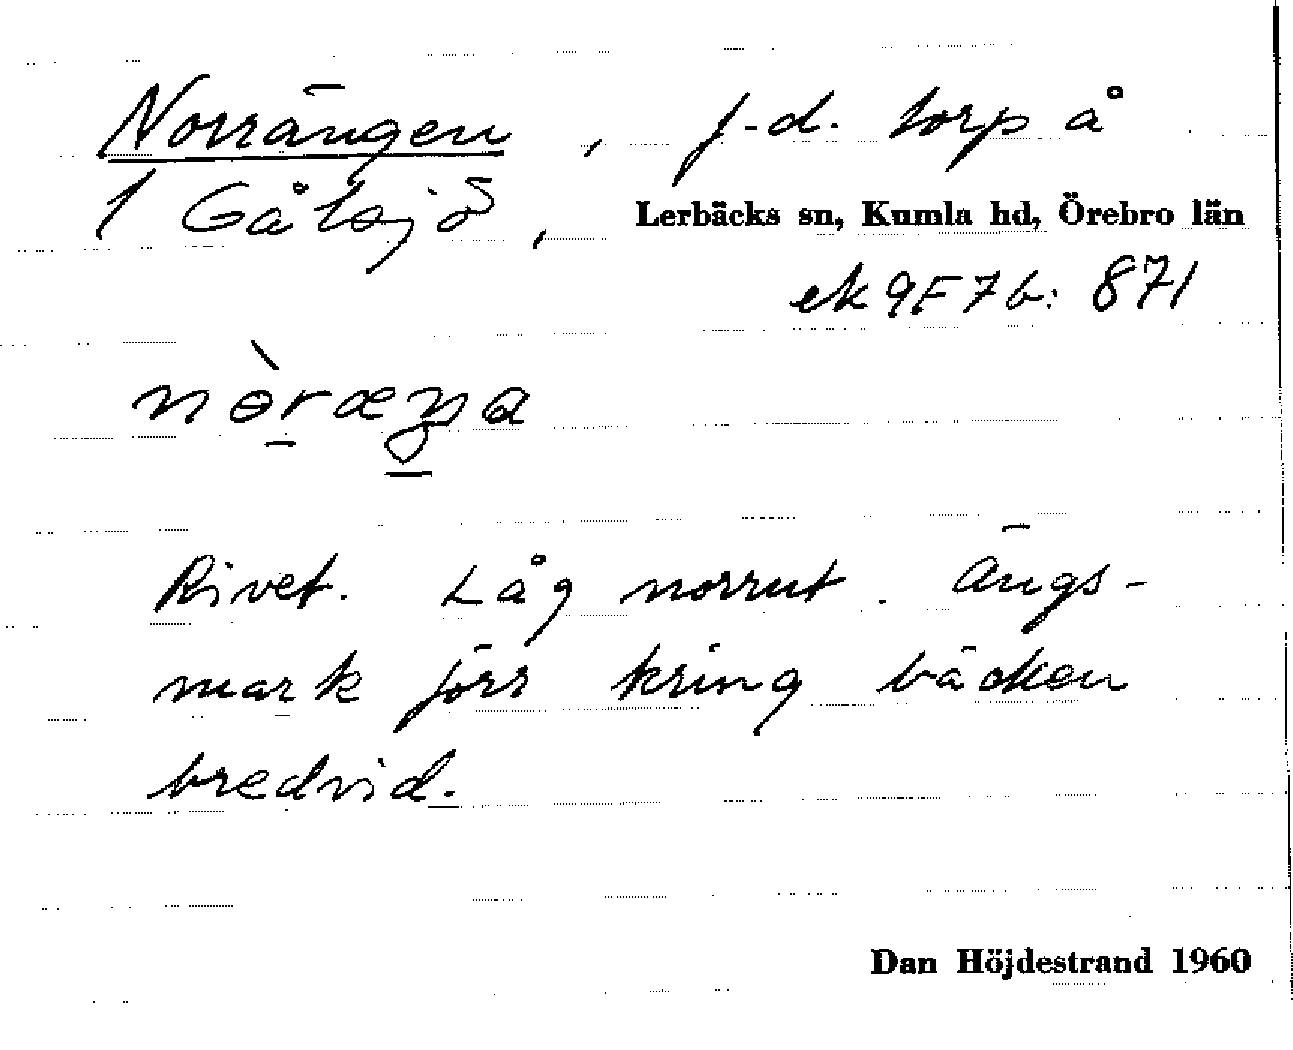 Norrängen, f.d. torp å
1 Gålsjö, Lerbäcks sn, Kumla hd, Örebro län
ek 9F7b: 871
Rivet. Låg norrut. Ängs-
mark förr kring bäcken
bredvid.
Dan Höjdestrand 1960